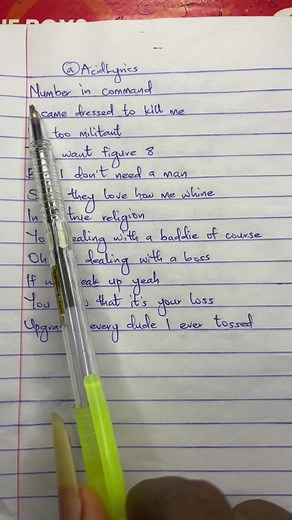 E BOYS
@AcidLyrics
Number in command
came dressed to kill me
too militant
want figure 8
I don't need a man
they love how me whine
In true religion
dealing with a baddie of course
Oh dealing with a boss
If up yeah
You that it's your loss
every dude I ever tossed